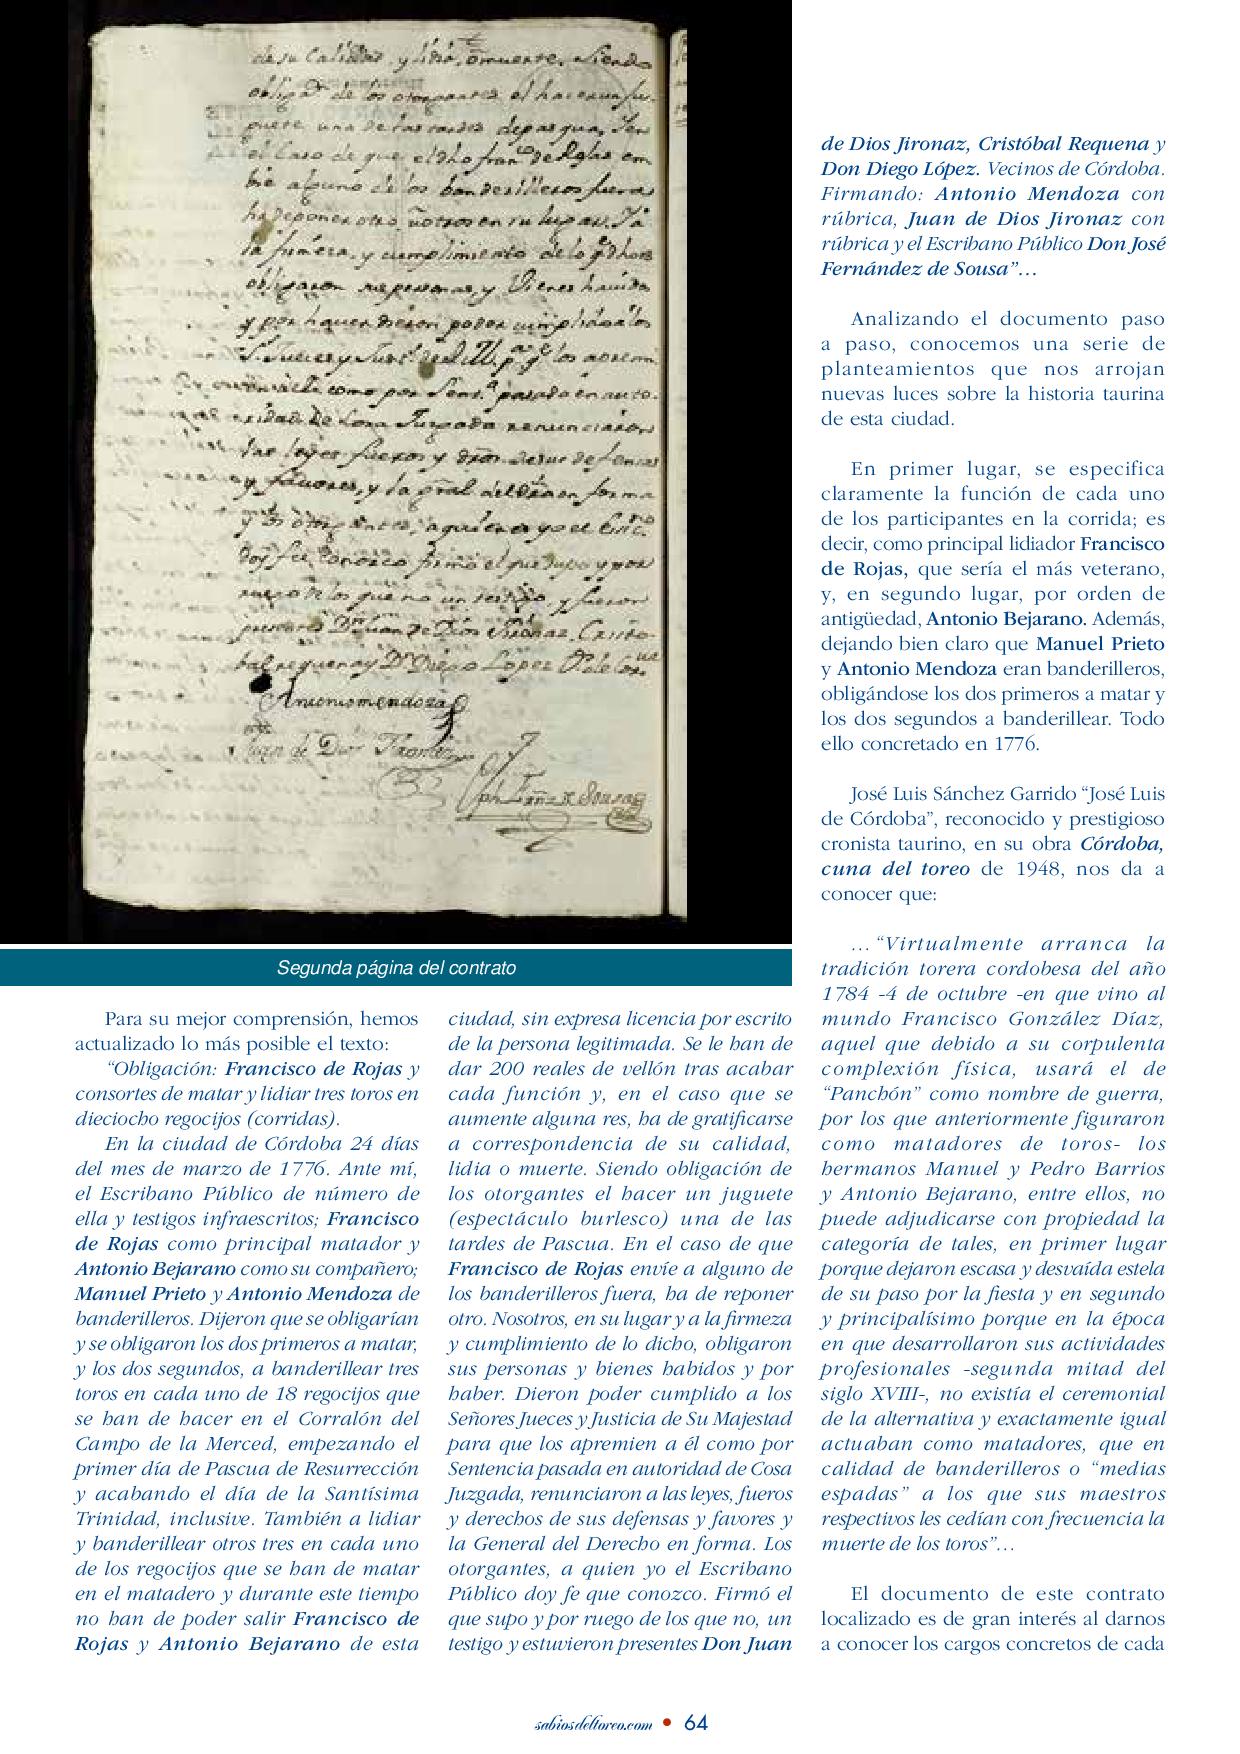 de su Calidad, y lidia, o muerte. Siendo
obligaⁿ de los otorgantes el hacer un ju-
guete una de las tardes de pasqua, Y en
el Caso de que el dho franᶜᵒ de Rojas em
bie alguno de los banderilleros fuera
ha de poner otro
la firmeza, y cumplimiento de lo
obligaron sus personas, y Vienes havidos
y por haver dieron poder cumplido a los
como por Sentᵃ pasada en auto-
ridad de Cosa Juzgada renunciaron
las leyes fueros y de sus defensas
y favores, y la en forma
y los otorgantes, a quienes yo el
doy fee conosco firmó el que supo y por
ruego de los que no un testigo y fueron
presentes Dⁿ Juan de Dios Jironaz, Cristo-
bal requena y Dⁿ Diego Lopez
Antonio mendoza
Juan de Dios Jironaz
Sousa
Segunda página del contrato
Para su mejor comprensión, hemos
actualizado lo más posible el texto:
“Obligación: Francisco de Rojas y
consortes de matar y lidiar tres toros en
dieciocho regocijos (corridas).
En la ciudad de Córdoba 24 días
del mes de marzo de 1776. Ante mí,
el Escribano Público de número de
ella y testigos infraescritos; Francisco
de Rojas como principal matador y
Antonio Bejarano como su compañero;
Manuel Prieto y Antonio Mendoza de
banderilleros. Dijeron que se obligarían
y se obligaron los dos primeros a matar,
y los dos segundos, a banderillear tres
toros en cada uno de 18 regocijos que
se han de hacer en el Corralón del
Campo de la Merced, empezando el
primer día de Pascua de Resurrección
y acabando el día de la Santísima
Trinidad, inclusive. También a lidiar
y banderillear otros tres en cada uno
de los regocijos que se han de matar
en el matadero y durante este tiempo
no han de poder salir Francisco de
Rojas y Antonio Bejarano de esta
ciudad, sin expresa licencia por escrito
de la persona legitimada. Se le han de
dar 200 reales de vellón tras acabar
cada función y, en el caso que se
aumente alguna res, ha de gratificarse
a correspondencia de su calidad,
lidia o muerte. Siendo obligación de
los otorgantes el hacer un juguete
(espectáculo burlesco) una de las
tardes de Pascua. En el caso de que
Francisco de Rojas envíe a alguno de
los banderilleros fuera, ha de reponer
otro. Nosotros, en su lugar y a la firmeza
y cumplimiento de lo dicho, obligaron
sus personas y bienes habidos y por
haber. Dieron poder cumplido a los
Señores Jueces y Justicia de Su Majestad
para que los apremien a él como por
Sentencia pasada en autoridad de Cosa
Juzgada, renunciaron a las leyes, fueros
y derechos de sus defensas y favores y
la General del Derecho en forma. Los
otorgantes, a quien yo el Escribano
Público doy fe que conozco. Firmó el
que supo y por ruego de los que no, un
testigo y estuvieron presentes Don Juan
de Dios Jironaz, Cristóbal Requena y
Don Diego López. Vecinos de Córdoba.
Firmando: Antonio Mendoza con
rúbrica, Juan de Dios Jironaz con
rúbrica y el Escribano Público Don José
Fernández de Sousa”…
Analizando el documento paso
a paso, conocemos una serie de
planteamientos que nos arrojan
nuevas luces sobre la historia taurina
de esta ciudad.
En primer lugar, se especifica
claramente la función de cada uno
de los participantes en la corrida; es
decir, como principal lidiador Francisco
de Rojas, que sería el más veterano,
y, en segundo lugar, por orden de
antigüedad, Antonio Bejarano. Además,
dejando bien claro que Manuel Prieto
y Antonio Mendoza eran banderilleros,
obligándose los dos primeros a matar y
los dos segundos a banderillear. Todo
ello concretado en 1776.
José Luis Sánchez Garrido “José Luis
de Córdoba”, reconocido y prestigioso
cronista taurino, en su obra Córdoba,
cuna del toreo de 1948, nos da a
conocer que:
…“Virtualmente arranca la
tradición torera cordobesa del año
1784 -4 de octubre -en que vino al
mundo Francisco González Díaz,
aquel que debido a su corpulenta
complexión física, usará el de
“Panchón” como nombre de guerra,
por los que anteriormente figuraron
como matadores de toros- los
hermanos Manuel y Pedro Barrios
y Antonio Bejarano, entre ellos, no
puede adjudicarse con propiedad la
categoría de tales, en primer lugar
porque dejaron escasa y desvaída estela
de su paso por la fiesta y en segundo
y principalísimo porque en la época
en que desarrollaron sus actividades
profesionales -segunda mitad del
siglo XVIII-, no existía el ceremonial
de la alternativa y exactamente igual
actuaban como matadores, que en
calidad de banderilleros o “medias
espadas” a los que sus maestros
respectivos les cedían con frecuencia la
muerte de los toros”…
El documento de este contrato
localizado es de gran interés al darnos
a conocer los cargos concretos de cada
sabiosdeltoreo.com • 64